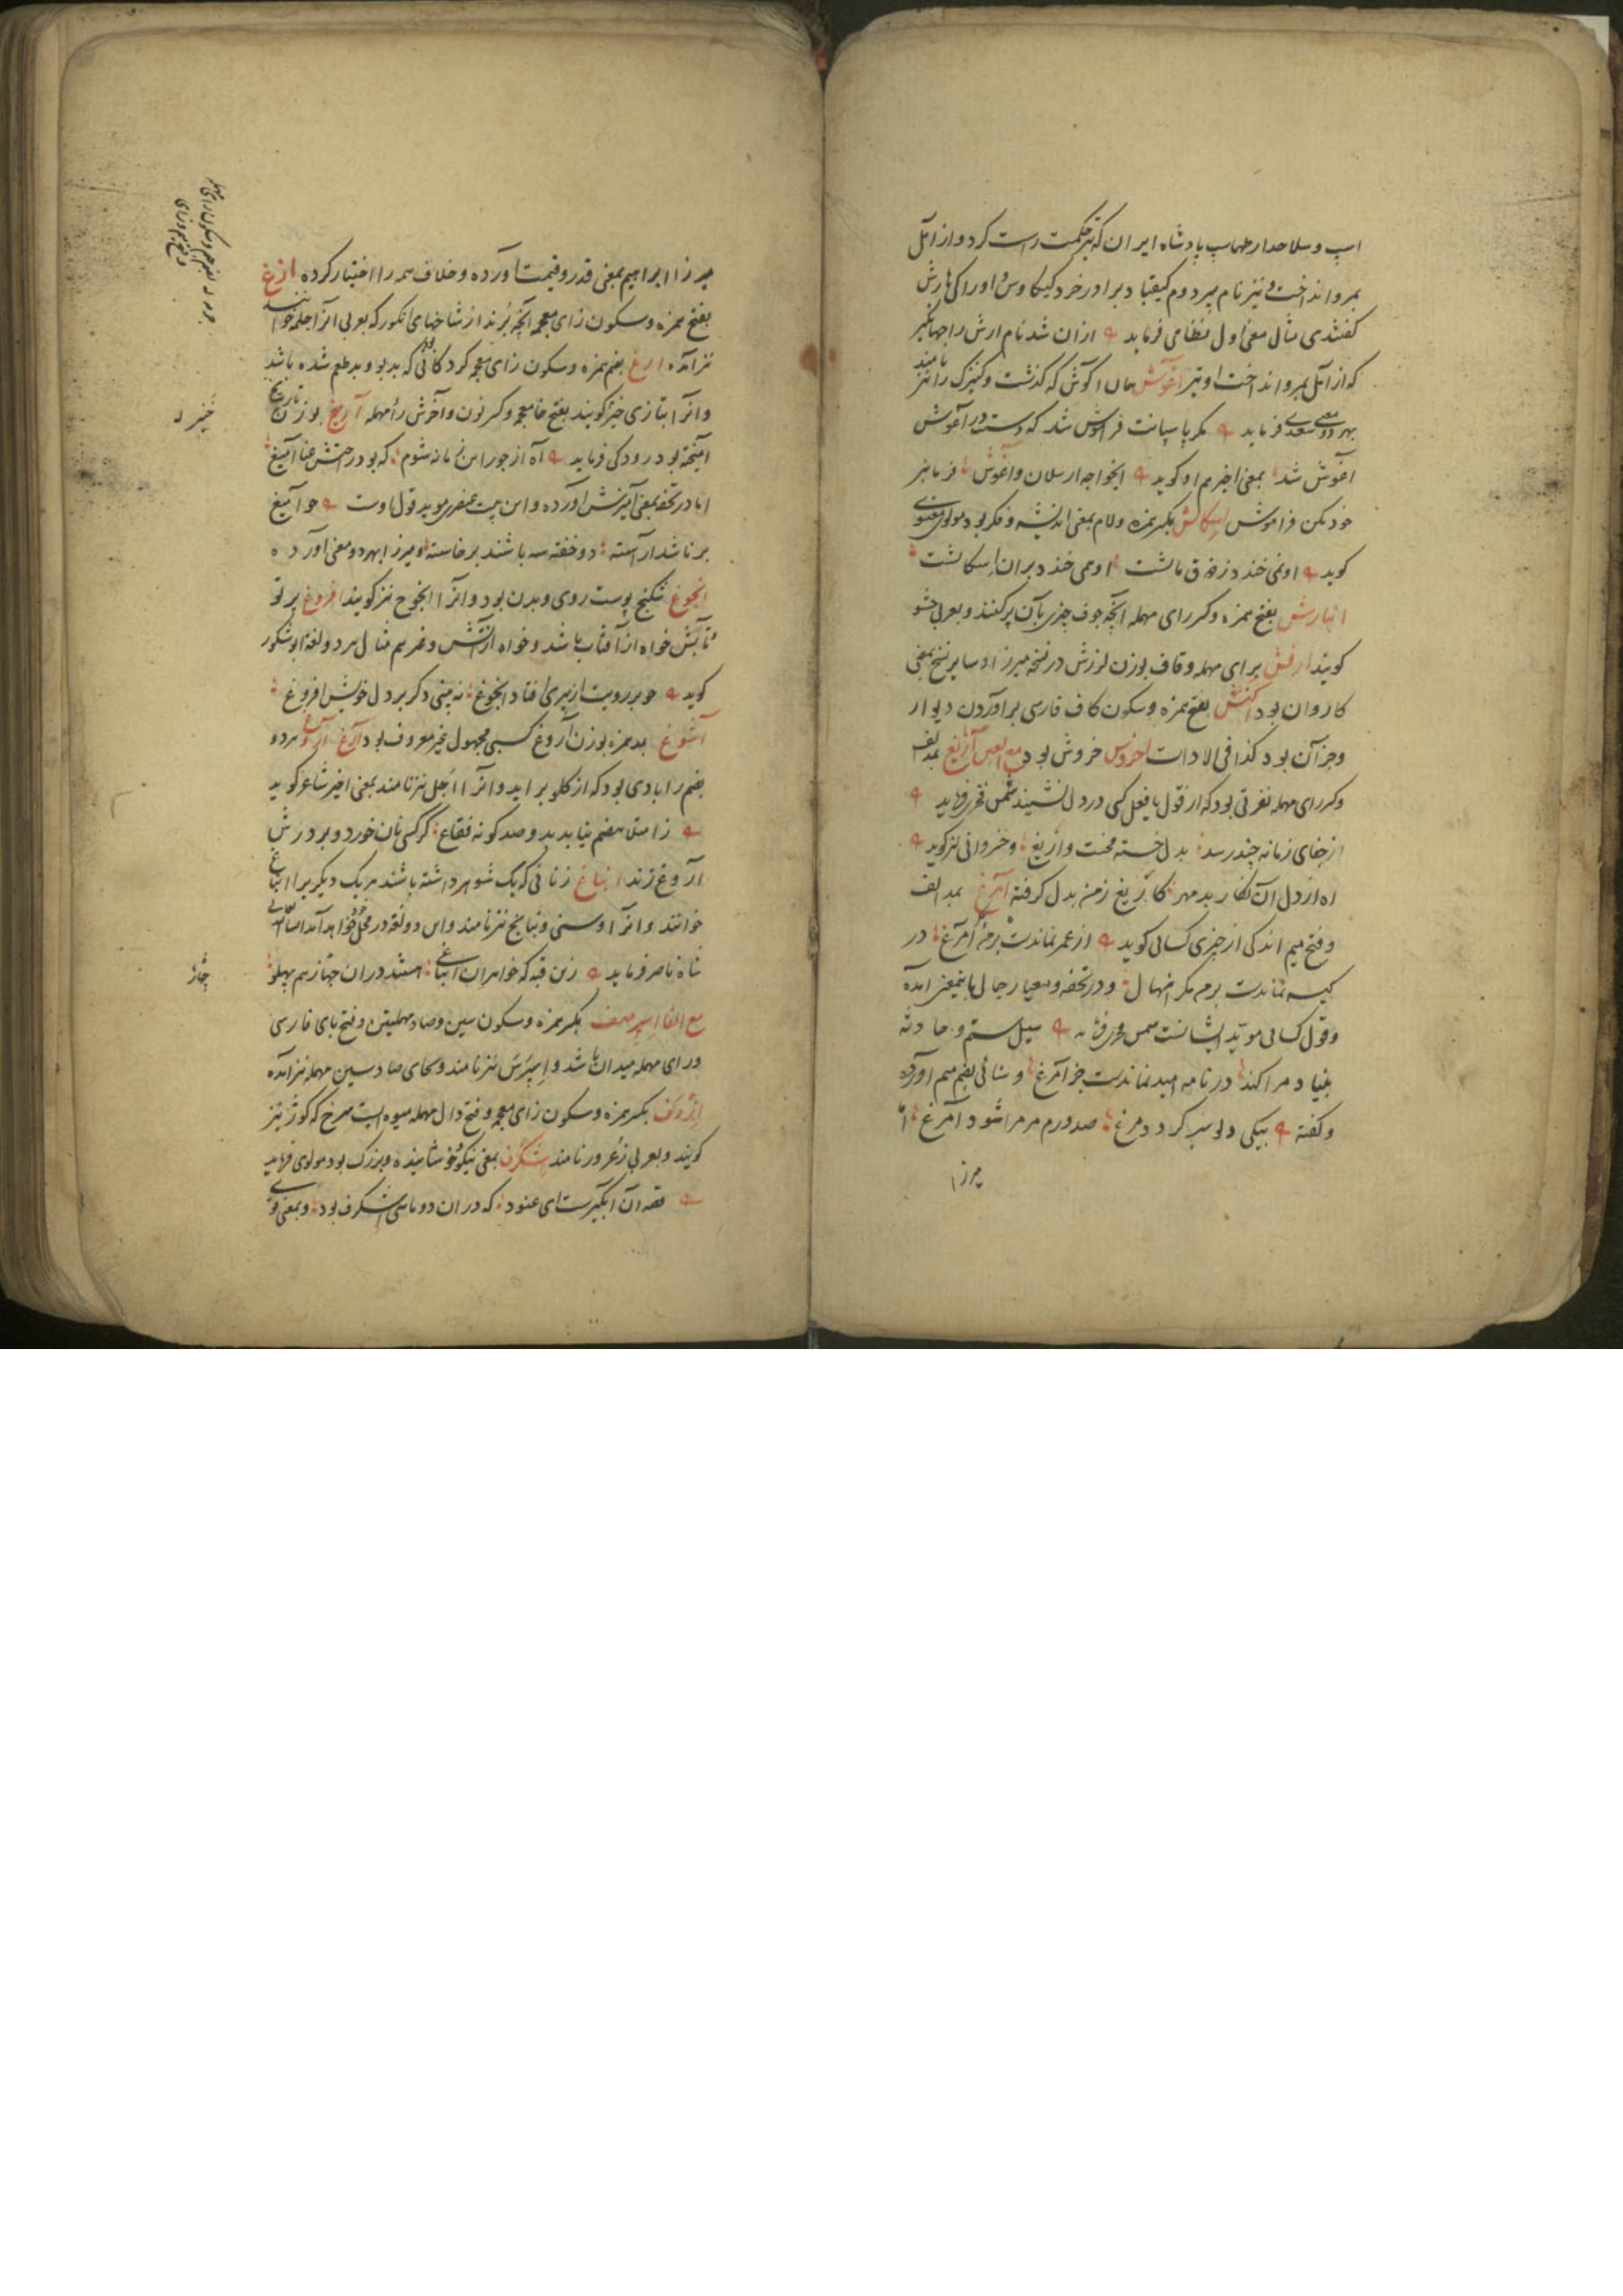 اسب و سلاحدار طهماسب پادشاه ایران که تیر حکمت راست کرد و از آمل
بمرو انداخت و نیز نام پسر دوم کیقباد برادر خرد کیکاوس و او را کی ارش
کفتندی مثال معنی اول نظامی فرماید از ان شد نام ارش را جهانگیر
که از آمل بمرو انداخت او تیر آغوش همان اکوش که کذشت و کنیزک را نیز نامند
بهر دو معنی سعدی فرماید مکر پاسبانت فراموش شد که دست در آغوش
آغوش شد بمعنی اخیر هم او کوید ایخواجه ارسلان و آغوش فرمانبر
خود مکن فراموش اسکالش بکسر همزه و لام بمعنی اندیشه و فکر بود مولوی معنوی
کوید او نمی خندد ز ذوق مالشت او همی خندد بران اسکالشت
انبارش بفتح همزه و کسر رای مهمله آنچه جوف چیزی بآن پر کنند و بعربی حشو
کویند ارقش برای مهمله و قاف بوزن لرزش در نسخه میرزا و سایر نسخ بمعنی
کاروان بود اکنش بفتح همزه و سکون کاف فارسی برآوردن دیوار
و جز آن بود کذا فی الادات اخروش خروش بود مع الغین آریغ بمد الف
و کسر رای مهمله نفرتی بود که از قول یا فعل کسی در دل نشیند شمس فخری فرماید
از جفای زمانه چند رسد بدل خسته محنت و آریغ و خسروانی نیز کوید
اه از دل آن نکار بدمهر کآریغ ز من بدل کرفته آمرغ بمد الف
و فتح میم اندکی از چیزی کسائی کوید از عمر نماندست برمن آمرغ در
کیسه نماندست برم مکر اخهال و در تحفه و معیار جمالی باینمعنی آمده
و قول کسائی موید ایشانست شمس فخری فرماید سیل ستم و حادثه
بنیاد مرا کند در نامه امید نماندست جز آمرغ و سنائی بضم میم آورده
و کفته بیکی دلو سیر کردد مرغ صد درم مر مرا شود آمرغ اما
میرزا
میرزا ابراهیم بمعنی قدر و قیمت آورده و خلاف همه را اختیار کرده ازغ
بفتح همزه و سکون زای معجمه آنچه بُرند از شاخهای انکور که بعربی آنرا جلمه خوانند
نیز آمده ارغ بضم همزه و سکون زای معجمه کردکانی که بدبو و بدطعم شده باشد
و آنرا بتازی خنز کویند بفتح خا معجمه و کسر نون و آخرش را مهمله آریغ بوزن تاریخ
آمیخته بود رودکی فرماید آه از جور این زمانه شوم که بود در حتش عنا آمیغ
اما در تحفه بمعنی آمیزش آورده و این بیت عنصری موید قول اوست چو آمیغ
برنا شد آراسته دو خفته سه باشند برخاسته و میرزا بهر دو معنی آورده
انجوغ شکنج پوست روی و بدن بود و آنرا انجوخ نیز کویند افروغ پرتو
و تابش خواه از آفتاب باشد و خواه از آتش و غیر هم مثال هر دو لغة ابو شکور
کوید چو بر رویت از پیری افتاد انجوغ نه بینی دکر بر دل خویش افروغ
آشوغ بمد همزه بوزن آروغ کسی مجهول غیر معروف بود آرغ آروغ هر دو
بضم را بادی بود که از کلو براید و آنرا آجل نیز نامند بمعنی اخیر شاعر کوید
ز امتلا هضم نیابد بد و صد کونه فقاع کر کسی نان خورد و بر درش
آروغ زند انباغ زنانی که یک شوهر داشته باشند هر یک دیکریرا انباغ
خوانند و آنرا اوسنی و نبانج نیز نامند و این دو لغة در محل خود خواهد آمد
شاه ناصر فرماید زین قبه که خواهران انباغ هستند دران چهار هم پهلو
مع الفا اسپرصف بکسر همزه و سکون سین و صاد مهملتین و فتح بای فارسی
و رای مهمله میدان باشد و اسپرس نیز نامند و بجای صاد سین مهمله نیز آمده
ازدف بکسر همزه و سکون زای معجمه و فتح دال مهمله میوه ایست سرخ که کوژ نیز
کویند و بعربی زعرور نامند اشکرف بمعنی نیکو و خوشاینده و بزرک بود مولوی فرماید
قصه آن آبکیرست ای عنود که دران دو ماهی اشکرف بود و بمعنی قوی
خنیر
چهار